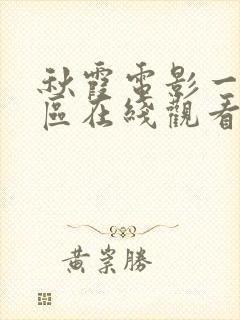 秋霞電影一
區在綫觀看
黃崇勝